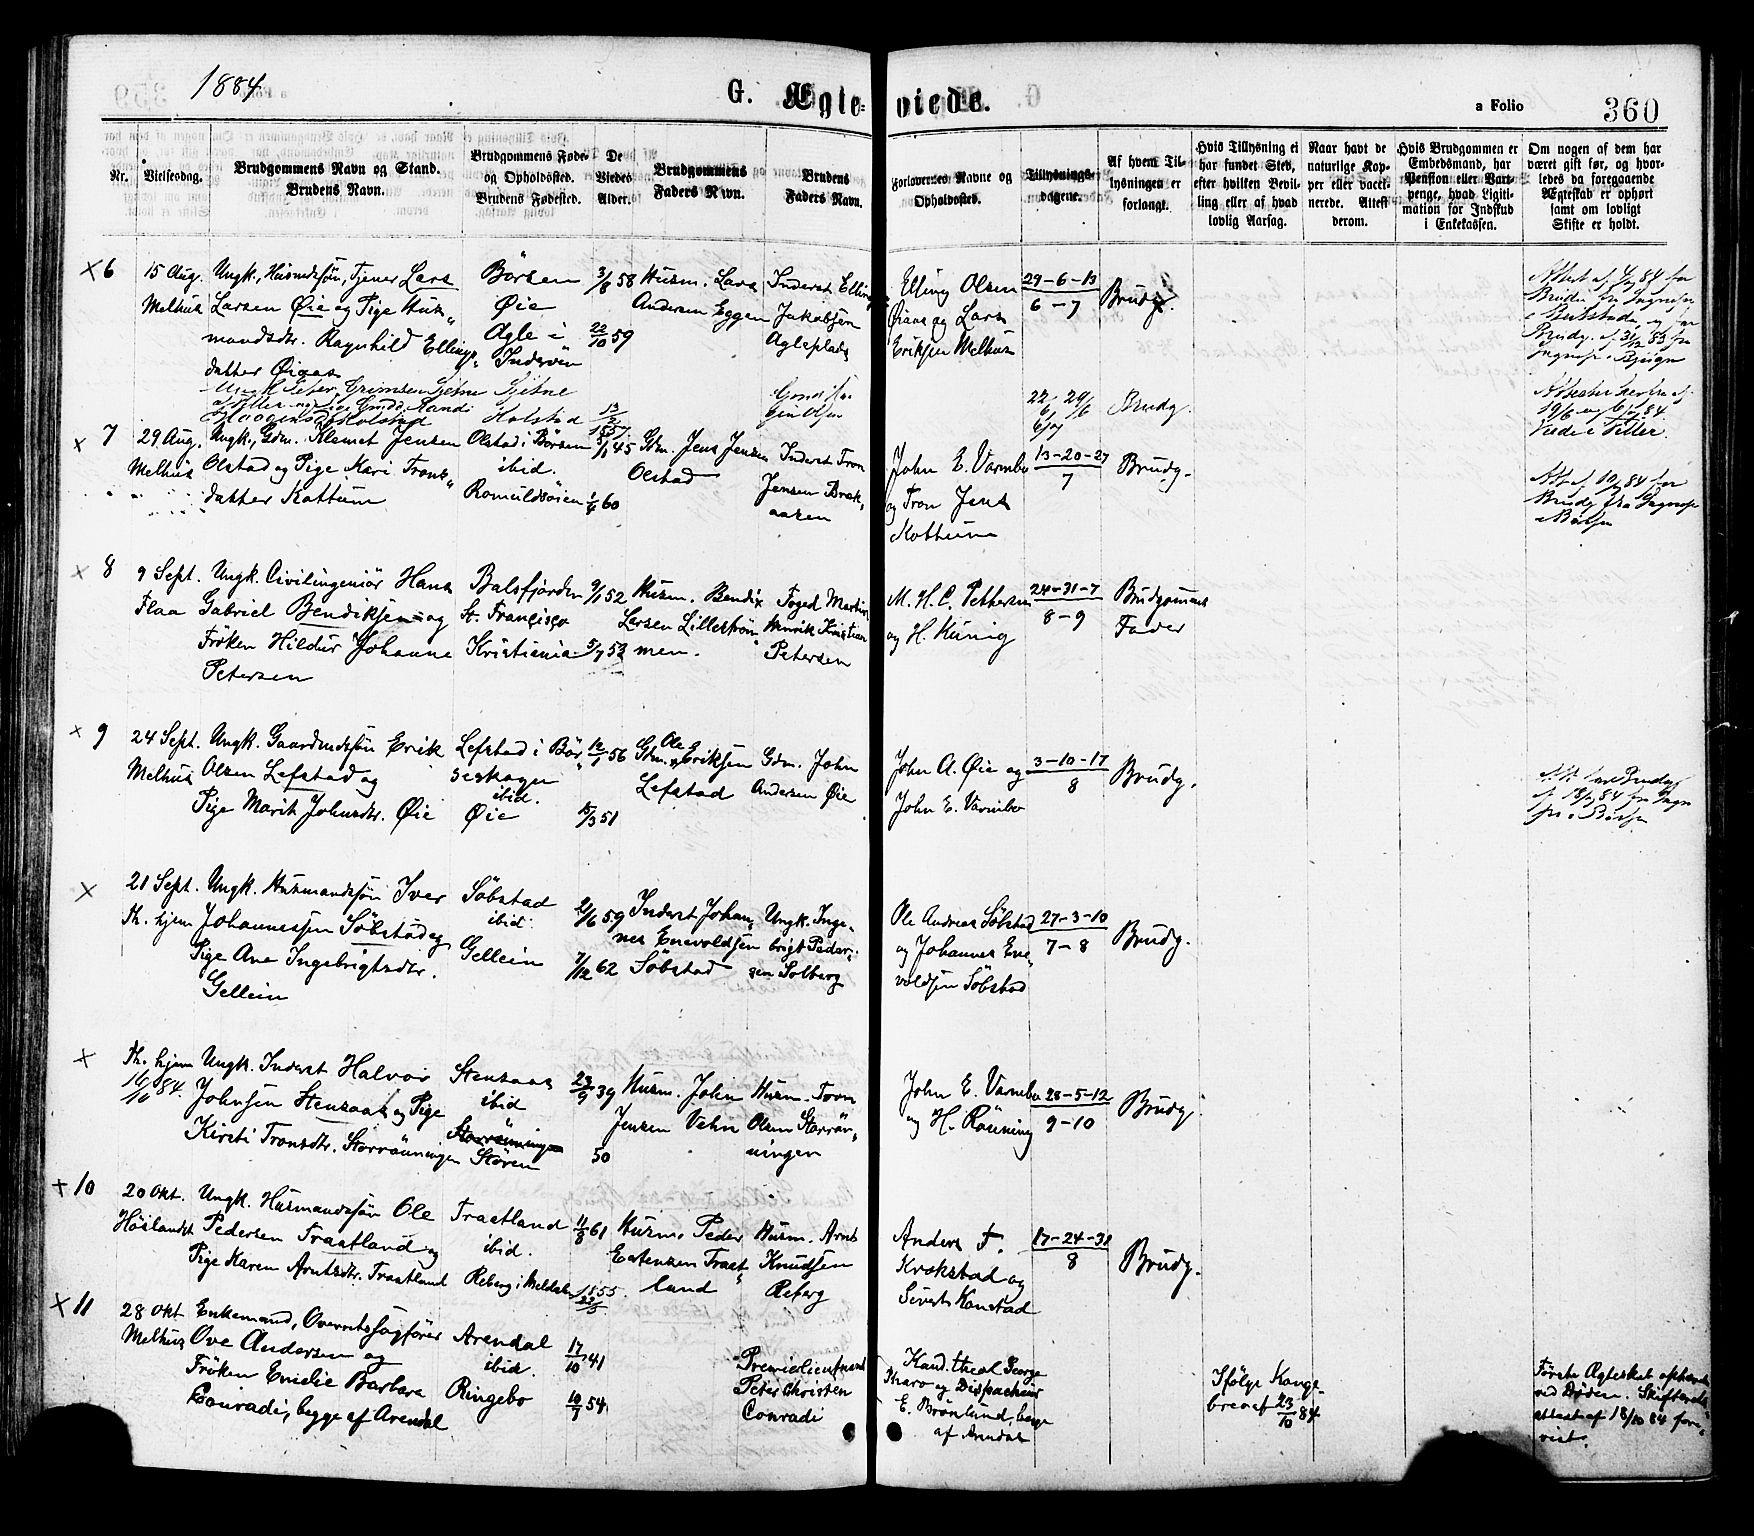 1884.
G. Ægte-viede.
a Folio 360
Nr.
Vielsesdag.
Brudgommens Navn og Stand.
Brudens Navn.
Brudgommens Føde-
og Opholdssted.
Brudens Fødested.
De
Viedes
Alder.
Brudgommens
Faders Navn.
Brudens
Faders Navn.
Forlovernes Navne og
Opholdssted.
Tillysnings-
dagene.
Af hvem Til-
lysningen er
forlangt.
Hvis Tillysning ei
har fundet Sted,
efter hvilken Bevil-
ling eller af hvad
lovlig Aarsag.
Naar havt de
naturlige Kop-
per eller vacci-
nerede. Attest
derom.
Hvis Brudgommen er
Embedsmand, har
Pension eller Vart-
penge, hvad Ligiti-
mation for Indskud
i Enkekassen.
Om nogen af dem har
været gift før, og hvor-
ledes da foregaaende
Ægteskab er ophørt
samt om lovligt
Skifte er holdt.
6
15 Aug.
Melhus
Ungk., Husmdssøn, Tjener Lars
Larsen Øie og Pige Hus-
mandsdtr. Ragnhild Ellings-
datter Øiaas
Børsen
Øie
Agle i
Inderøen
3/8 58
22/10 59
Husm. Lars
Andersen Eggen
Inderst Elling
Jakobsen
Agleplads
Elling Olsen
Øiaas og Lars
Eriksen Melhus
29-6-13
6-7
Brudg.
Sjetne
Kolstad
22/6 29/6
Brudg.
7
29 Aug.
Melhus
Ungk., Gdm. Klemet Jensen
Olstad og Pige Kari Trons-
datter Kattum
Olstad i Børsen
ibid.
Romuldsøien
5/1 45
1/4 60
Gdm. Jens Jensen
Olstad
Inderst Tron
Jensen Bræk-
aasen
John E. Varmbo
og Tron Jens
Kattum
13-20-27
7
Brudg.
8
9 Sept.
Flaa
Ungk. Civilingeniør Hans
Gabriel Bendiksen og
Frøken Hildur Johanne
Petersen
Balsfjorden
St. Francisco
Kristiania
9/1 52
5/7 53
Husm. Bendix
Larsen Lillestrøm-
men.
Foged Martin
Henrik Kristian
Petersen
M. H. C. Pettersen
og H. Kunig
24-31-7
8-9
Brudgommens
Fader
9
24 Sept.
Melhus
Ungk. Gaardmdssøn Erik
Olsen Lefstad og
Pige Marit Johnsdtr. Øie
Lefstad i Bør-
seskogn
ibid.
Øie
12/1 56
15/3 51
Gdm. Ole Eriksen
Lefstad
Gdm. John
Andersen Øie
John A. Øie og
John E. Varmbo
3-10-17
8
Brudg.
21 Sept.
Th. hjem
Ungk. Husmandssøn Iver
Johannessen Søbstad og
Pige Ane Ingebrigtsdtr.
Gellein
Søbstad
ibid.
Gellein
21/6 59
7/12 62
Inderst Johan-
nes Enevoldsen
Søbstad
Ungk. Inge-
brigt Peder-
sen Solberg
Ole Andreas Søbstad
og Johannes Ene-
voldsen Søbstad
27-3-10
7-8
Brudg.
Th. hjem
16/10 84.
Ungk. Inderst Halvor
Johnsen Stensaas og Pige
Kirsti Tronsdtr. Storrønningen
Stensaas
ibid
Støren
23/9 39
50
Husm. John
Jensen Vehn
Husm. Tron
Olsen Storrøn-
ningen
John E. Varmbo
og H. Rønning
28-5-12
9-10
Brudg.
10
20 Okt.
Høilandet
Ungk. Husmandssøn Ole
Pedersen Traatland og
Pige Karen Arntsdtr. Traatland
Traatland
ibid.
Reberg i Meldalen
11/8 61
55
Husm. Peder
Estensen Traat-
land
Husm. Arnt
Knudsen
Reberg
Anders F.
Krokstad og
Sivert Kanstad
17-24-31
8
Brudg.
11
28 Okt
Melhus
Enkemand, Overretssagfører
Ove Andersen og
Frøken Emelie Barbara
Conradi, begge af Arendal
Arendal
ibid.
Ringebo
17/10 41
10/7 54
Premierlieutnant
Peter Christen
Conradi
Kand. theol George
Tharo og Dispachiur
E. Brønlund, begge
af Arendal
Ifølge Konge-
brev af 23/10 84
Første Ægteskab ophævet
ved Døden. Skifterets-
attest af 18/10 84 fore-
vist.